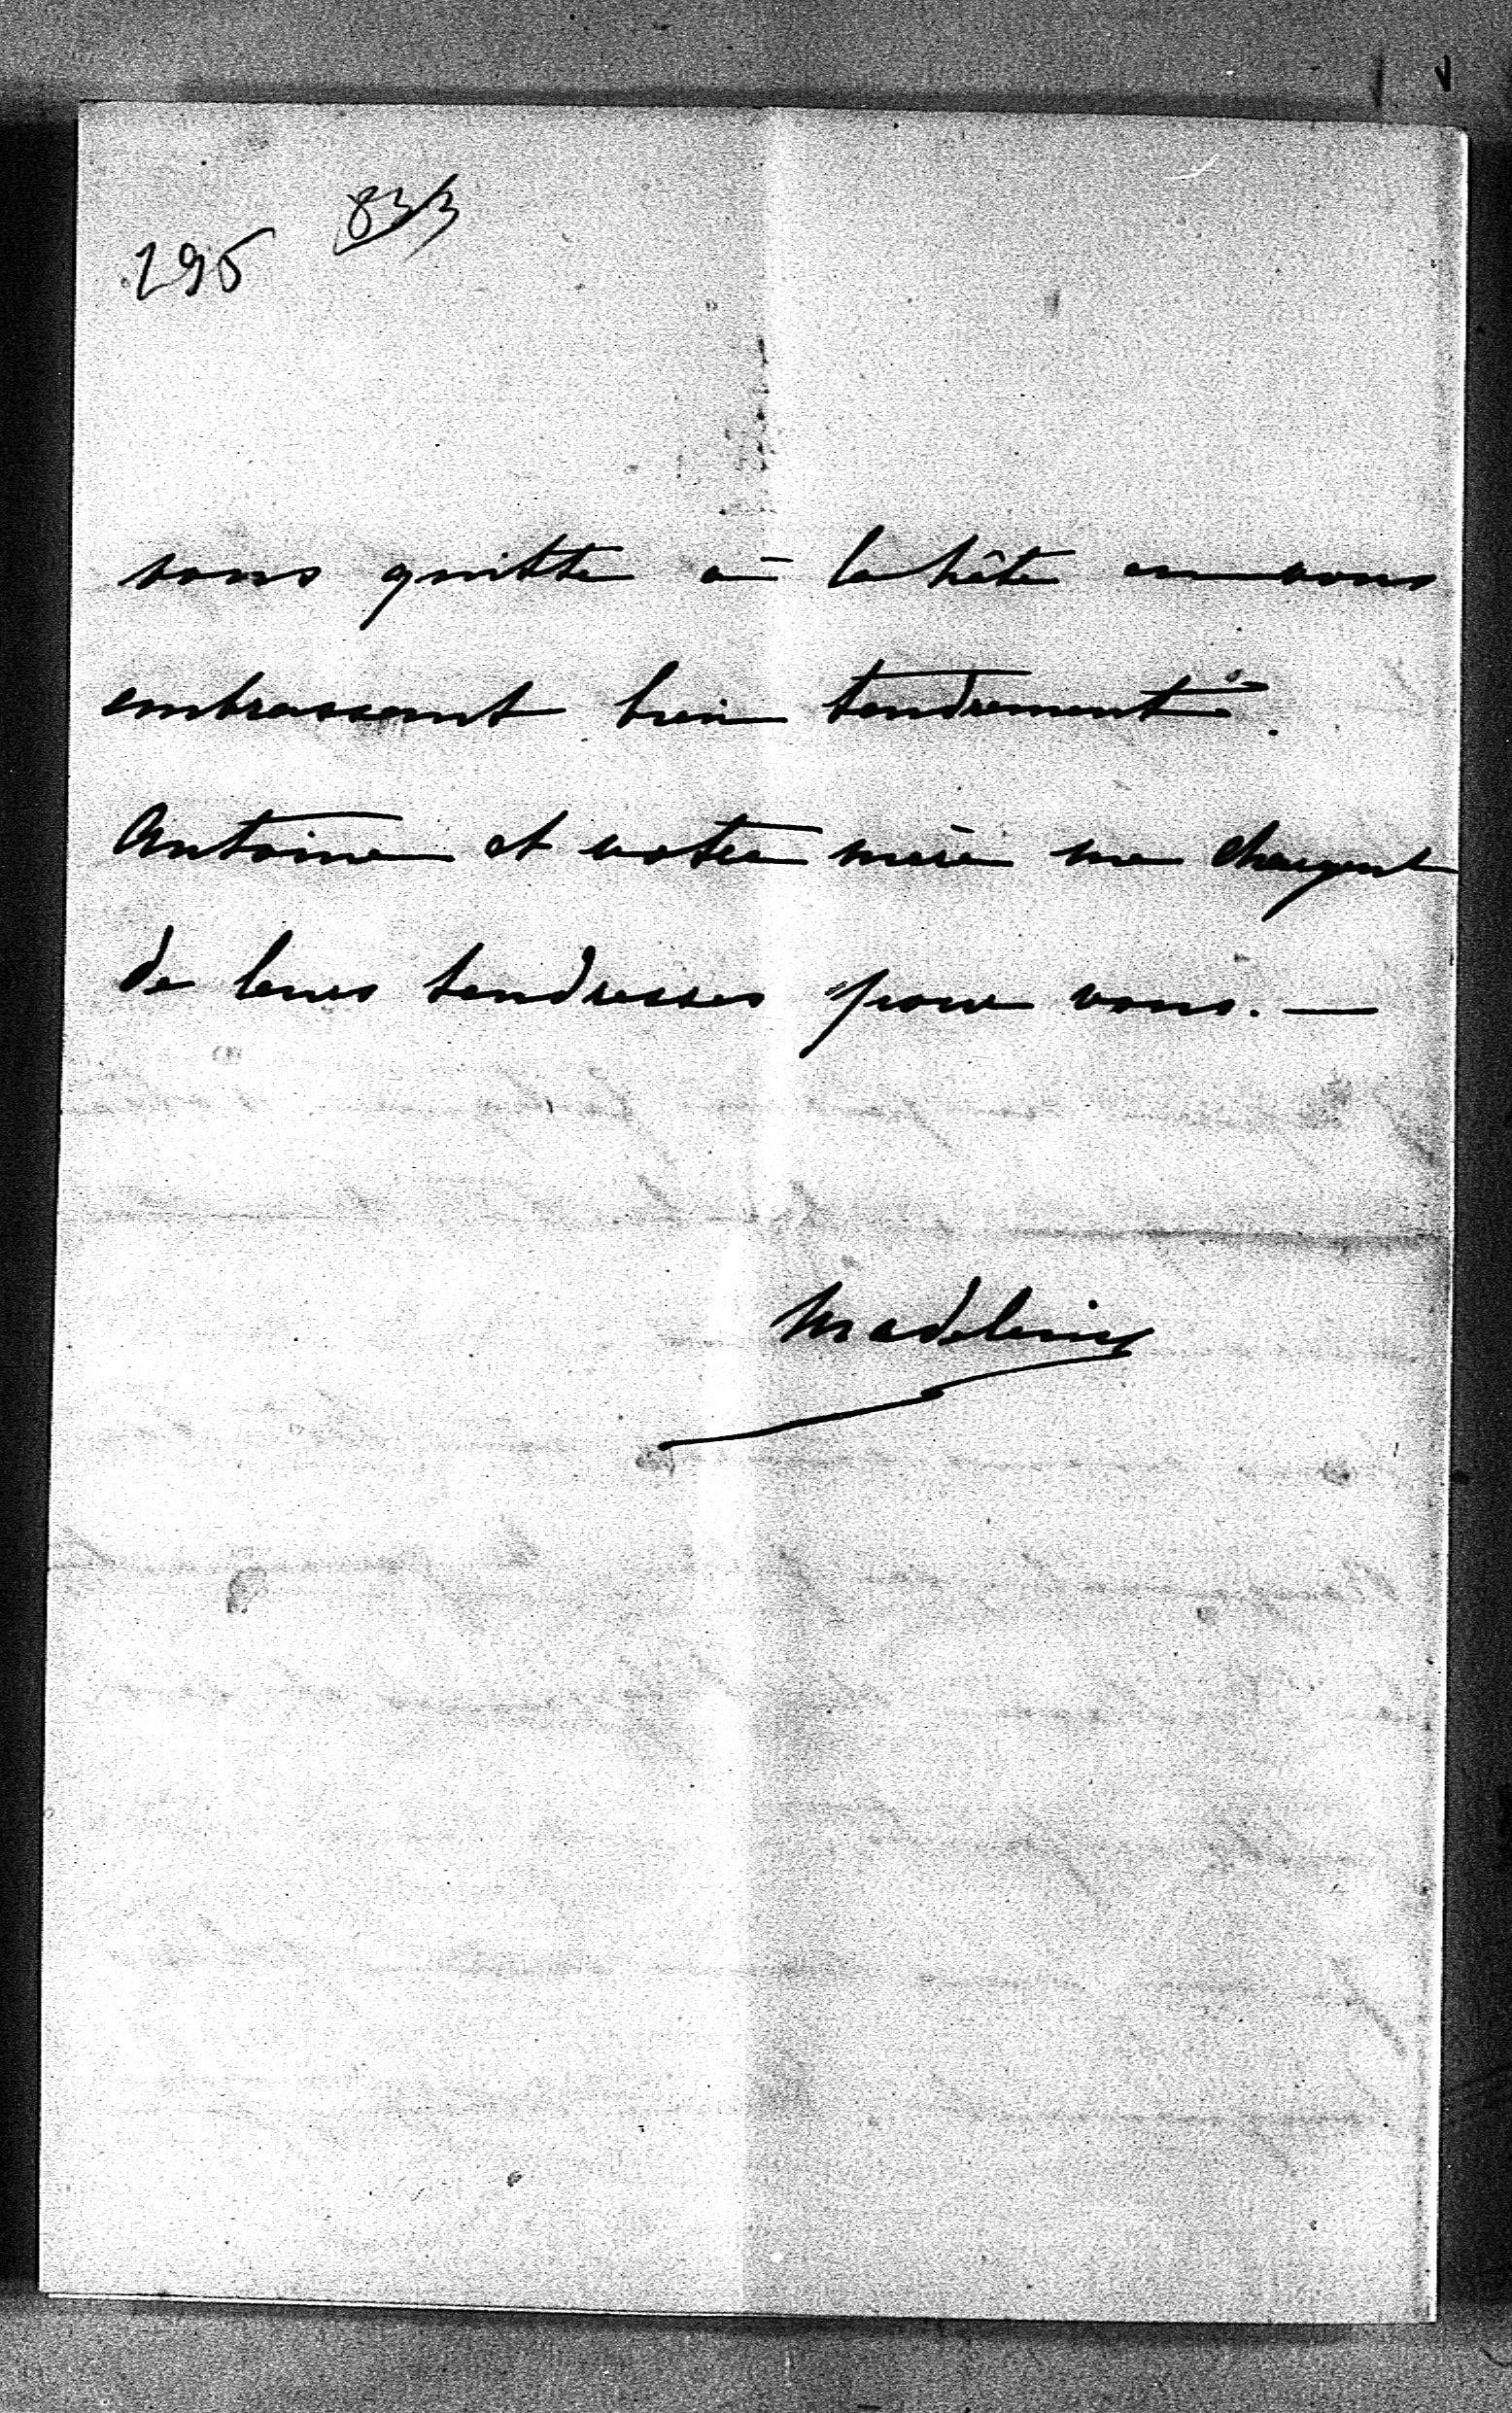 833
295
vous quitte à la hâte en vous
embrassant bien tendrement.
Antoine et votre mère me chargent
de leurs tendresses pour vous. —
Madeleine